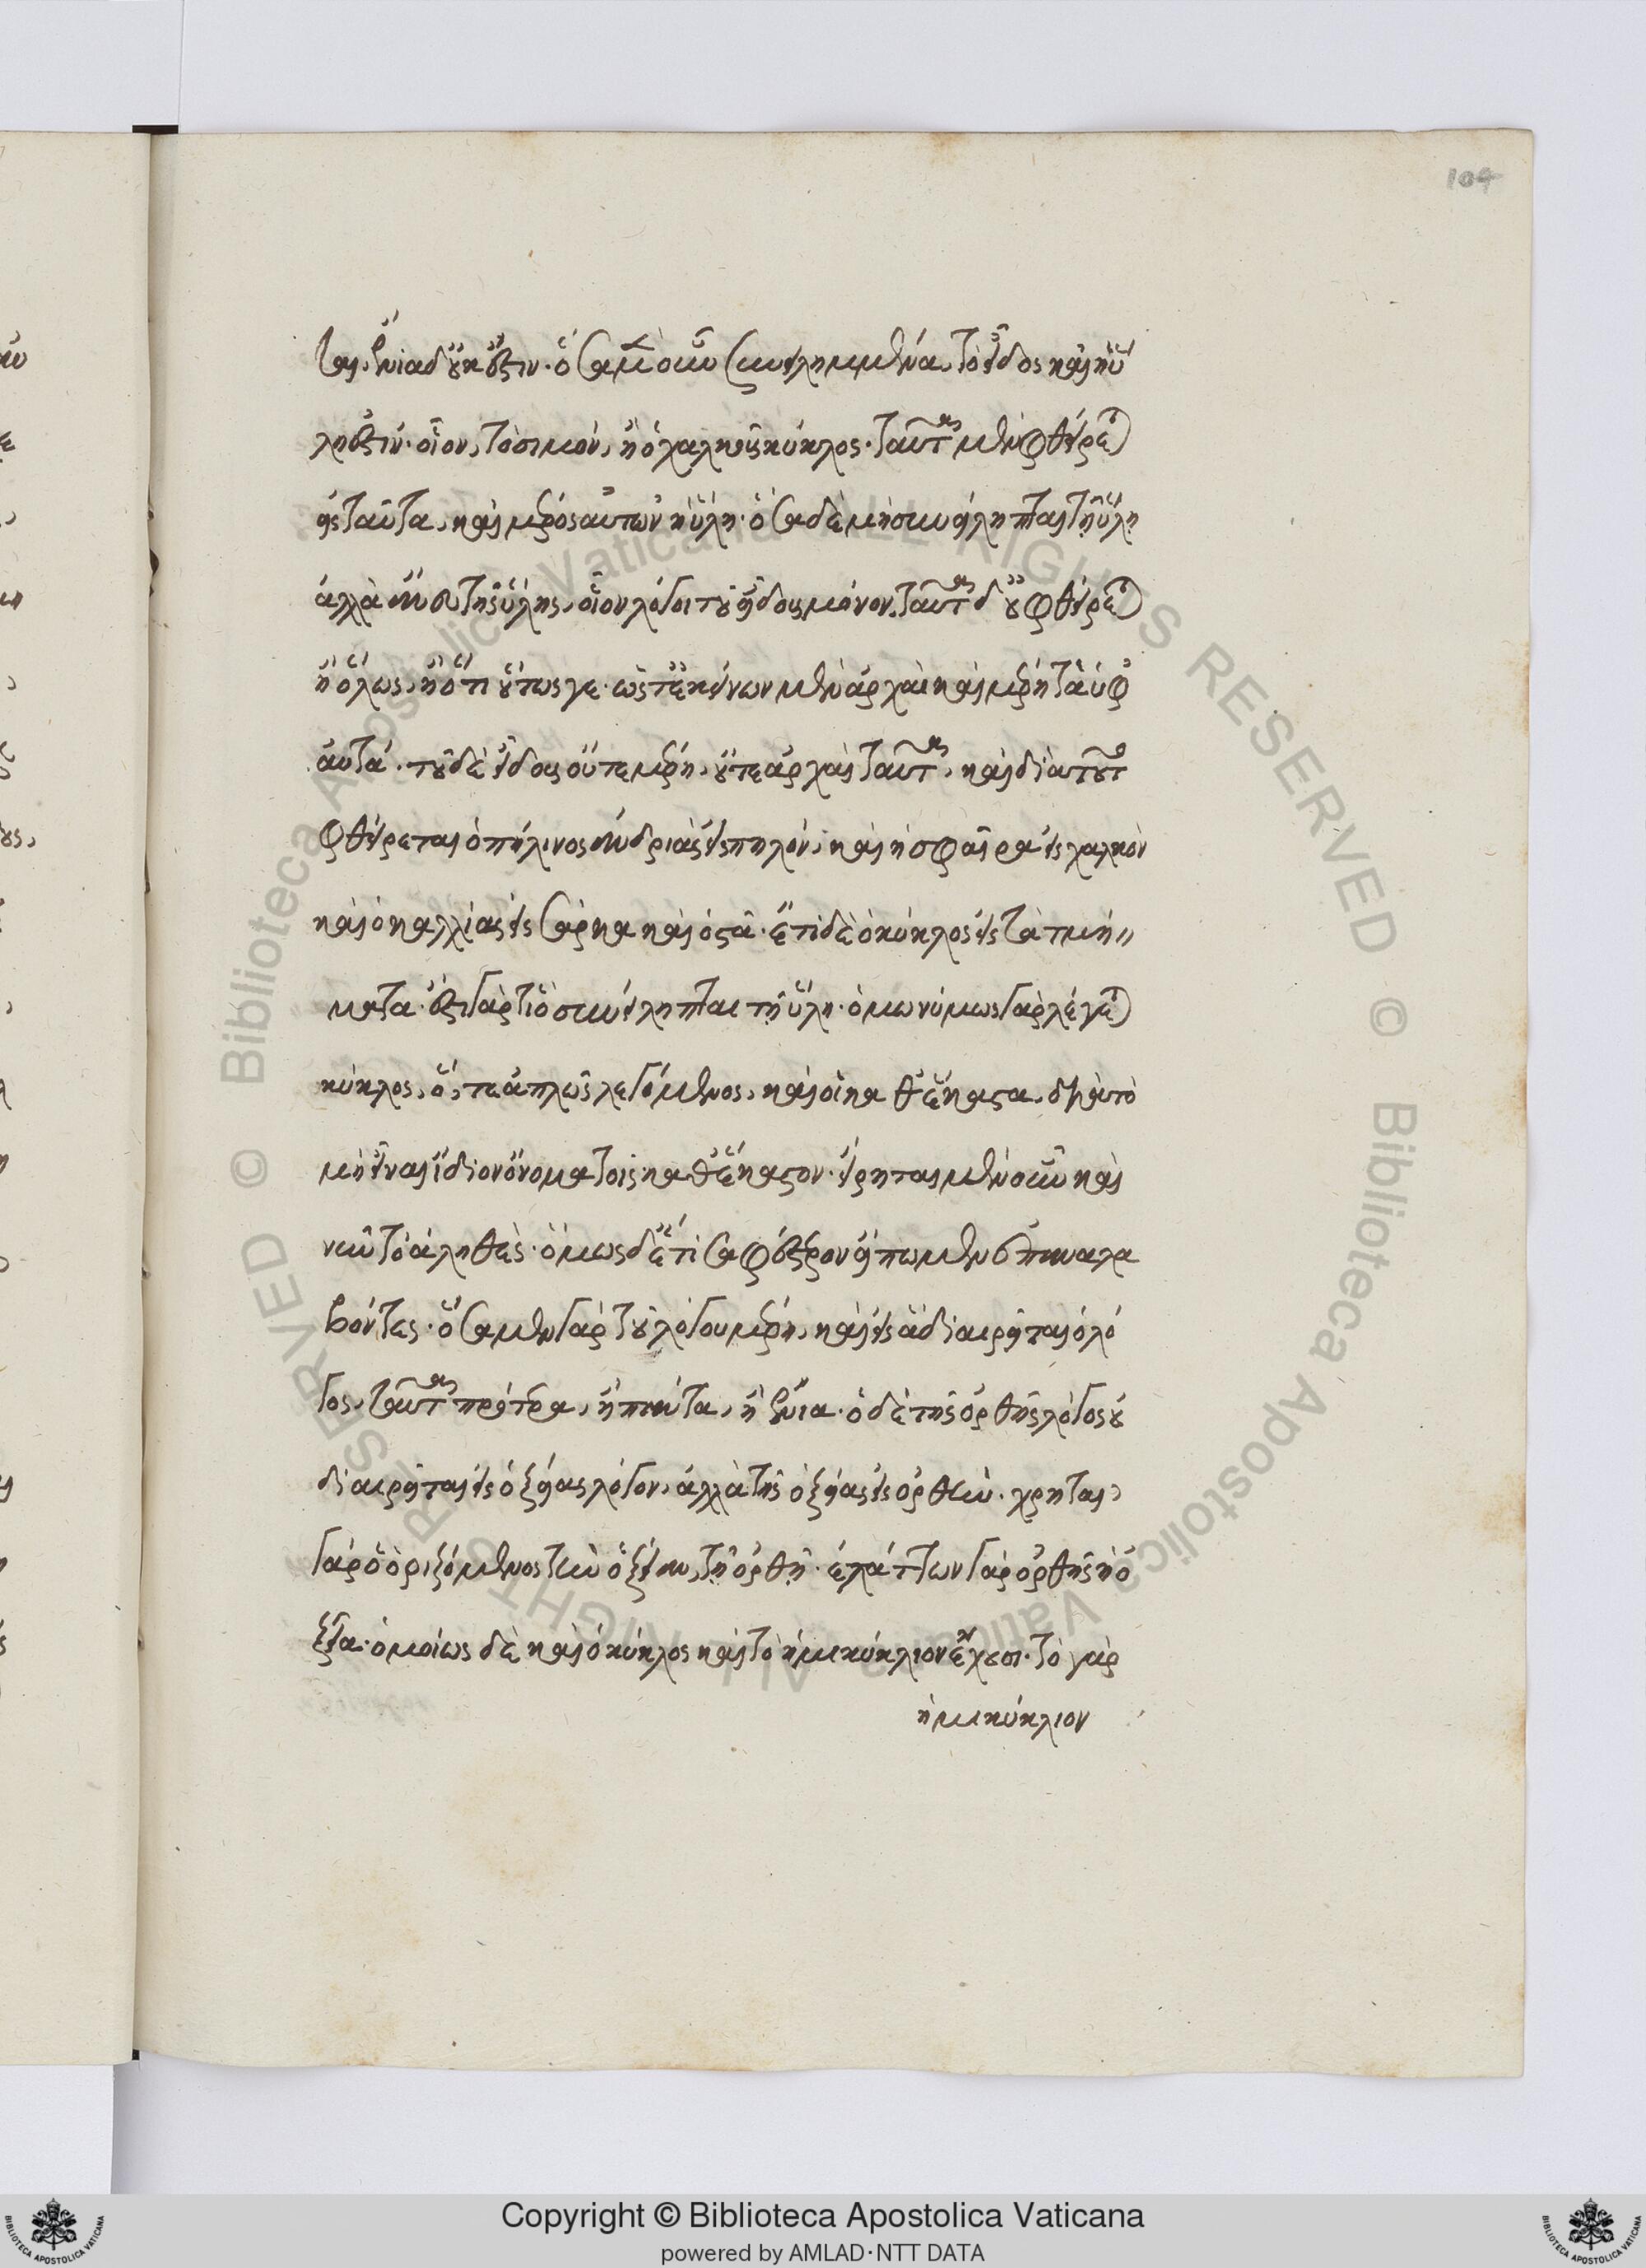 104
ται, ἔνια δ' οὐκ ἔστιν. ὅσα μὲν οὖν συνειλημμένα, τὸ εἶδος καὶ ἡ ὕ
λη ἐστίν. οἷον, τὸ σιμὸν, ἢ ὁ χαλκοῦς κύκλος. ταῦτα μὲν φθείρεται
εἰς ταῦτα, καὶ μέρος αὐτῶν ἡ ὕλη. ὅσα δὲ μὴ συνείληπται τῇ ὕλῃ
ἀλλὰ ἄνευ τῆς ὕλης, οἷον λόγοι τοῦ εἴδους μόνον, ταῦτα δ' οὐ φθείρεται
ἢ ὅλως, ἢ ὅτι οὕτως γε. ὥστ' ἐκείνων μὲν ἀρχαὶ καὶ μέρη τὰ ὑφ'
αὐτά. τοῦ δὲ εἴδους οὔτε μέρη, οὔτε ἀρχαὶ ταῦτα, καὶ διὰ τοῦτο
φθείρεται ὁ πήλινος ἀνδριὰς εἰς πηλόν, καὶ ἡ σφαῖρα εἰς χαλκὸν
καὶ ὁ καλλίας εἰς σάρκα καὶ ὀστᾶ. ἔτι δὲ ὁ κύκλος εἰς τὰ τμή
ματα. ἔστι γάρ τι ὃ συνείληπται τῇ ὕλῃ. ὁμωνύμως γὰρ λέγεται
κύκλος, ὅ, τε ἁπλῶς λεγόμενος, καὶ οἱ καθ' ἕκαστα, διὰ τὸ
μὴ εἶναι ἴδιον ὄνομα τοῖς καθ' ἕκαστον. εἴρηται μὲν οὖν καὶ
νῦν τὸ ἀληθές. ὅμως δ' ἔτι σαφέστερον εἴπωμεν ἐπαναλα
βόντες. ὅσα μὲν γὰρ τοῦ λόγου μέρη, καὶ εἰς ἃ διαιρεῖται ὁ λό
γος, ταῦτα πρότερα, ἢ πάντα, ἢ ἔνια. ὁ δὲ τῆς ὀρθῆς λόγος οὐ
διαιρεῖται εἰς ὀξείας λόγον, ἀλλὰ τῆς ὀξείας εἰς ὀρθήν. χρῆται
γὰρ ὁ ὁριζόμενος τὴν ὀξεῖαν, τῇ ὀρθῇ. ἐλάττων γὰρ ὀρθῆς ἡ ὀ
ξεῖα. ὁμοίως δὲ καὶ ὁ κύκλος καὶ τὸ ἡμικύκλιον ἔχουσι. τὸ γὰρ
ἡμικύκλιον
Copyright © Biblioteca Apostolica Vaticana
powered by AMLAD·NTT DATA